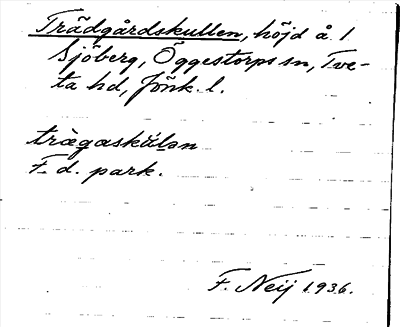 Trädgårdskullen, höjd å 1
Sjöberg, Öggestorps sn, Tve-
ta hd, Jönk. l.
trägaskúlən
F. d. park.
F. Neij 1936.